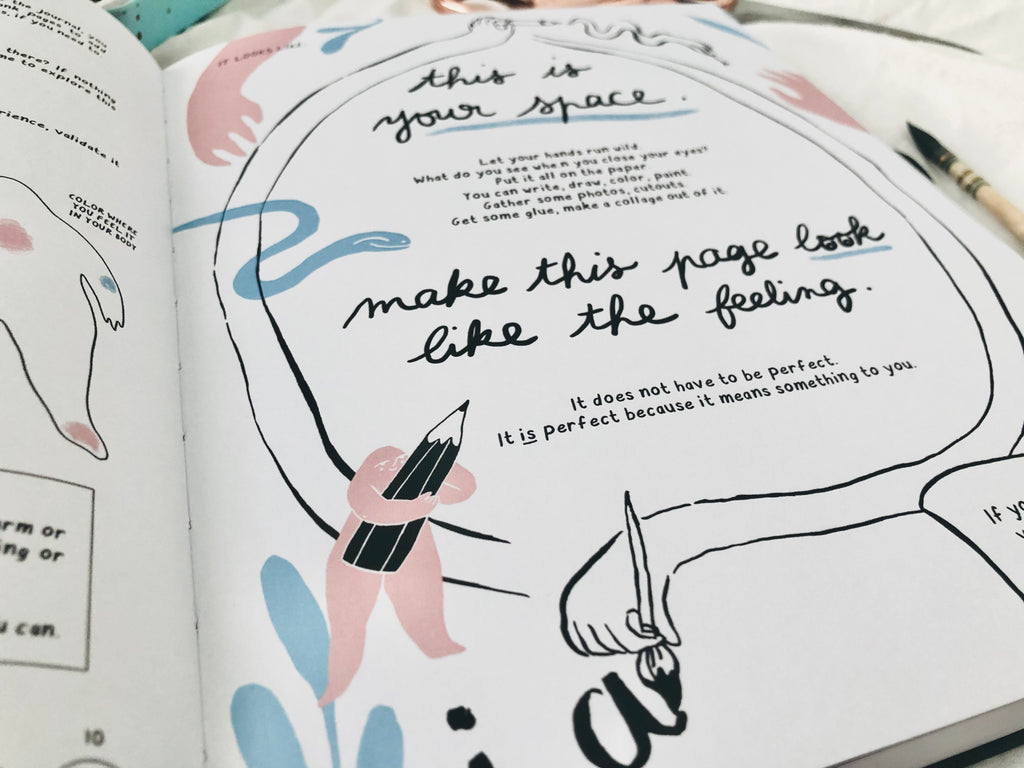 the journal
pages to you
. if you need to
there? If nothing
me to explore this
rience, validate it
COLOR WHERE
YOU FEEL IT
IN YOUR BODY
arm or
ing or
u can.
10
IT LOOKS LIKE
this is
your space.
Let your hands run wild
What do you see when you close your eyes?
Put it all on the paper
You can write, draw, color, paint
Gather some photos, cutouts
Get some glue, make a collage out of it.
make this page look
like the feeling.
It does not have to be perfect.
It is perfect because it means something to you.
If yo
ia